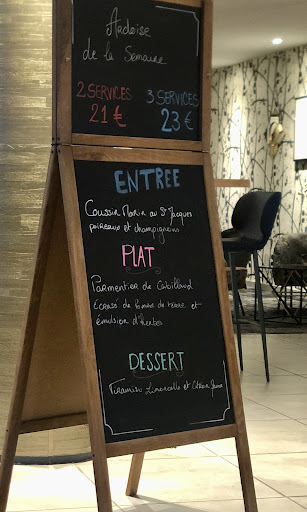 Ardoise
de la Semaine
2 SERVICES
21 €
3 SERVICES
23 €
ENTREE
Coussin Marin au St Jacques
poireaux et champignons
PLAT
Parmentier de Cabillaud
Ecrasé de pomme de terre et
émulsion d'herbes
DESSERT
Tiramisu Limoncello et Citron Jaune